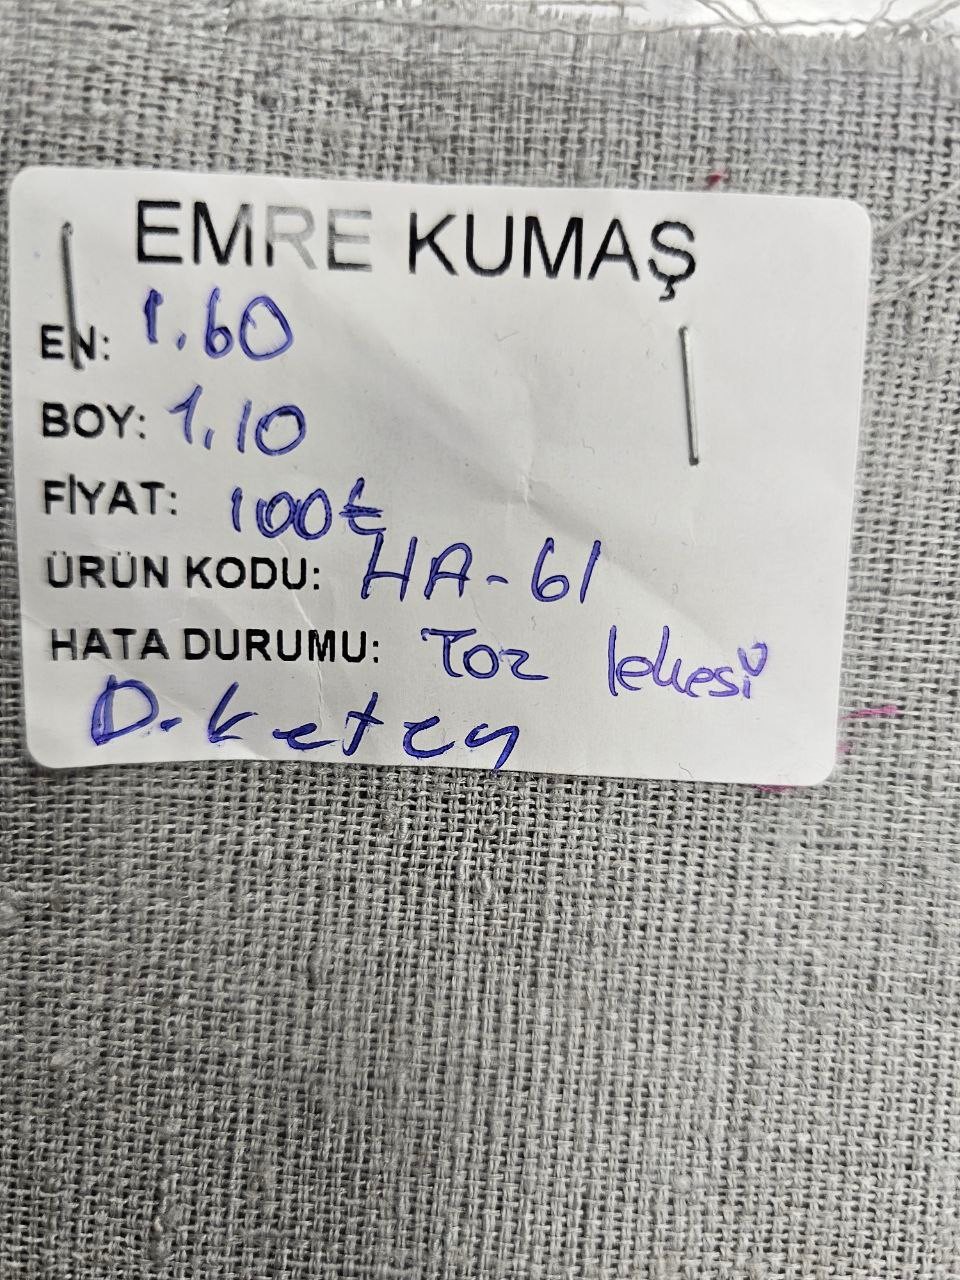 EMRE KUMAŞ
EN: 1.60
BOY: 1.10
FİYAT: 100₺
ÜRÜN KODU: HA-61
HATA DURUMU: Toz lekesi
D. Keten